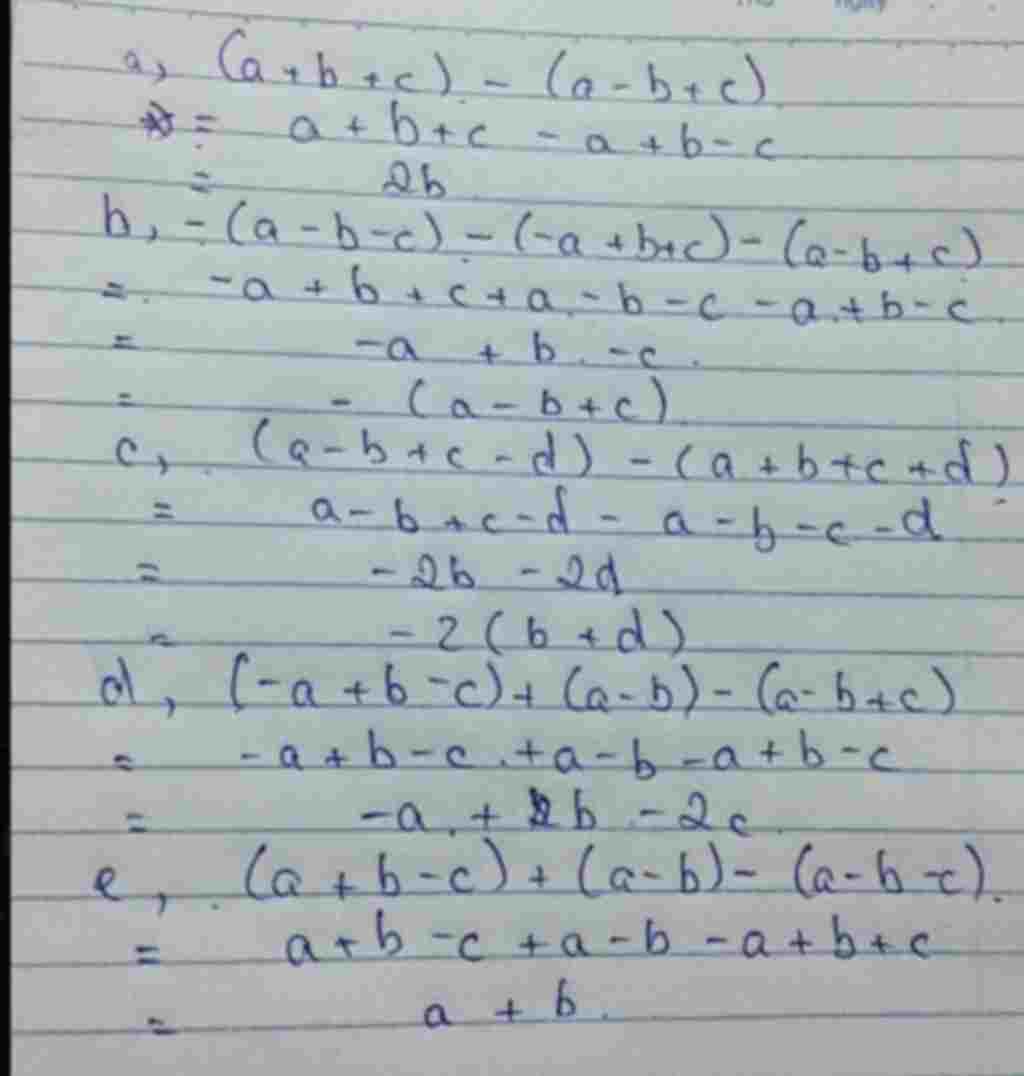 a, (a + b + c) - (a - b + c)
= a + b + c - a + b - c
= 2b
b, - (a - b - c) - (-a + b + c) - (a - b + c)
= -a + b + c + a - b - c - a + b - c
= -a + b - c
= - (a - b + c)
c, (a - b + c - d) - (a + b + c + d)
= a - b + c - d - a - b - c - d
= -2b - 2d
= -2 (b + d)
d, (-a + b - c) + (a - b) - (a - b + c)
= -a + b - c + a - b - a + b - c
= -a + b - 2c
e, (a + b - c) + (a - b) - (a - b - c)
= a + b - c + a - b - a + b + c
= a + b